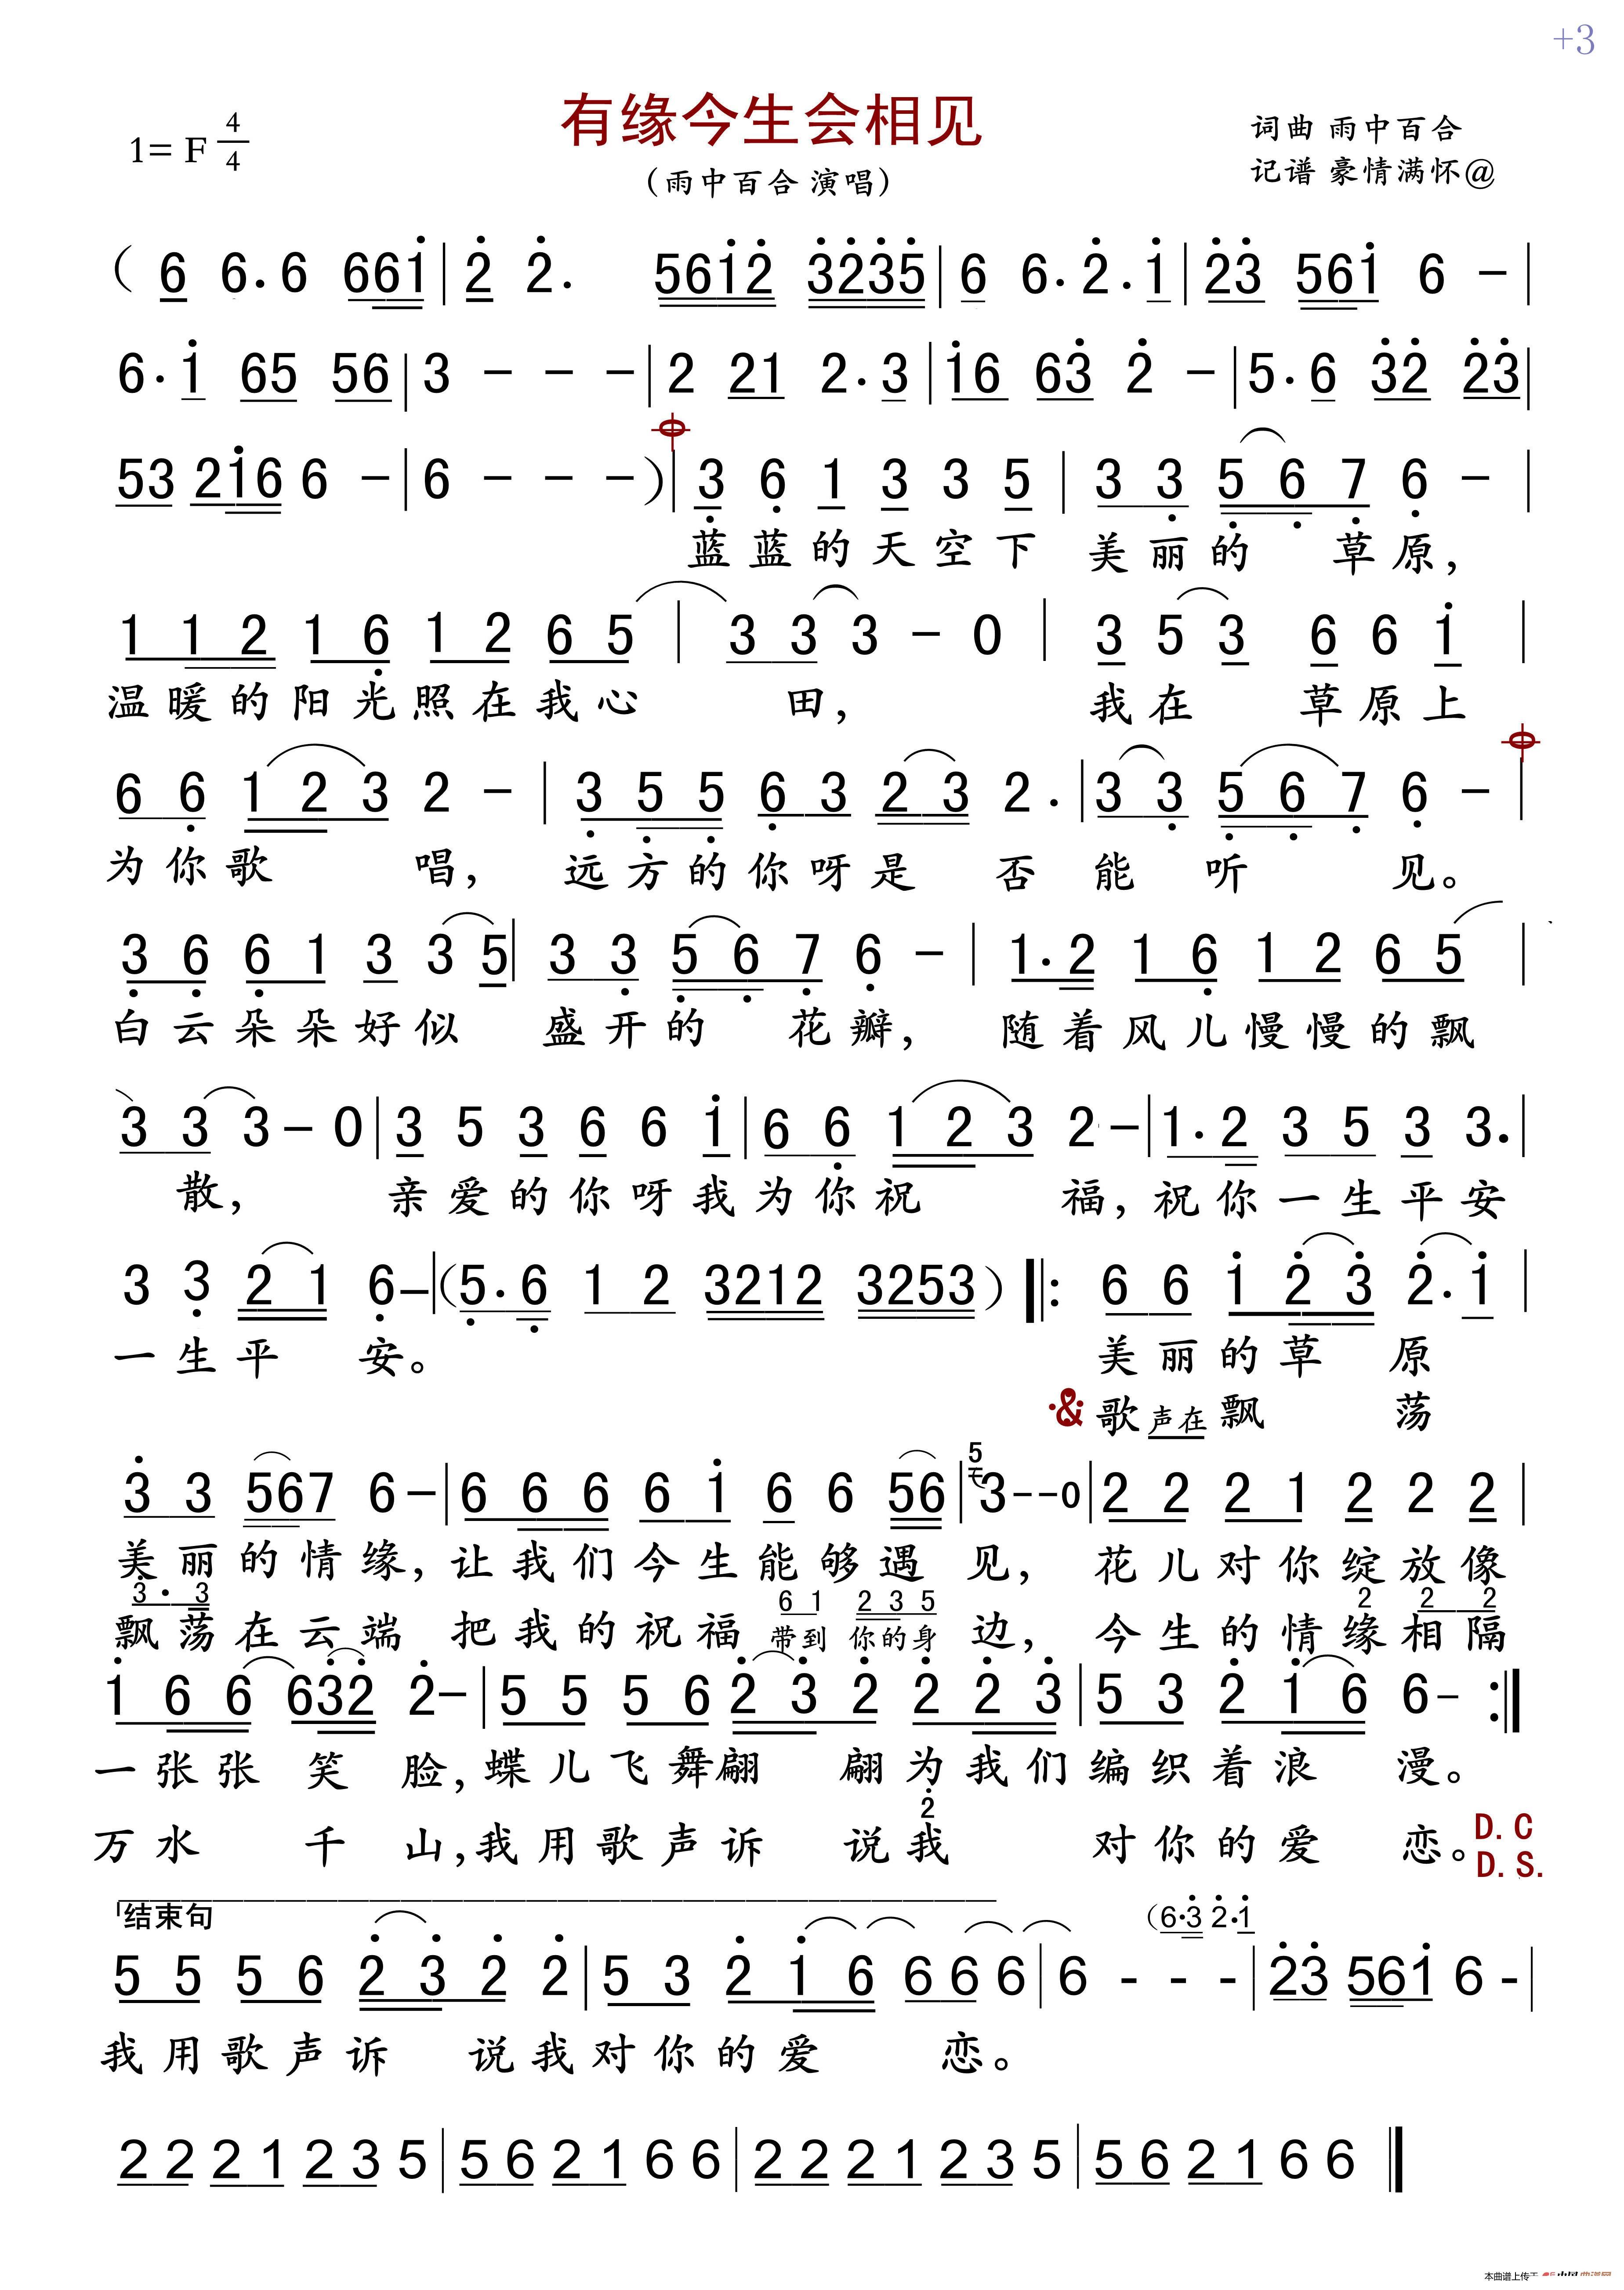 +3
有缘今生会相见
1= F 4/4
(雨中百合 演唱)
词曲 雨中百合
记谱 豪情满怀@
( 6 6. 6 661 | 2 2. 5612 3235 | 6 6. 2. 1 | 23 561 6 - |
6. 1 65 56 | 3 - - - | 2 21 2. 3 | 16 63 2 - | 5. 6 32 23 |
53 216 6 - | 6 - - - ) | 3 6 1 3 3 5 | 3 3 5 6 7 6 - |
蓝蓝的天空下 美丽的 草原,
1 1 2 1 6 1 2 6 5 | 3 3 3 - 0 | 3 5 3 6 6 1 |
温暖的阳光照在我心 田, 我在 草原上
6 6 1 2 3 2 - | 3 5 5 6 3 2 3 2. | 3 3 5 6 7 6 - |
为你歌 唱, 远方的你呀是 否 能 听 见。
3 6 6 1 3 3 5 | 3 3 5 6 7 6 - | 1. 2 1 6 1 2 6 5 |
白云朵朵好似 盛开的 花瓣, 随着风儿慢慢的飘
3 3 3 - 0 | 3 5 3 6 6 1 | 6 6 1 2 3 2 - | 1. 2 3 5 3 3. |
散, 亲爱的你呀我为你祝 福, 祝你一生平安
3 3 2 1 6 - | (5. 6 1 2 3212 3253 ) |: 6 6 1 2 3 2. 1 |
一生平 安。 美丽的草 原
& 歌声在飘 荡
3 3 567 6 - | 6 6 6 6 1 6 6 56 | 5 3 - - 0 | 2 2 2 1 2 2 2 |
美丽的情缘, 让我们今生能够遇 见, 花儿对你绽放像
3. 3 6 1 2 3 5 2 2 2
飘荡在云端 把我的祝福 带到 你的身 边, 今生的情缘相隔
1 6 6 632 2 - | 5 5 5 6 2 3 2 2 2 3 | 5 3 2 1 6 6 - :|
一张张 笑 脸, 蝶儿飞舞翩 翩为我们编织着浪 漫。
2
万水 千 山, 我用歌声诉 说我 对你的爱 恋。 D.C
D.S.
结束句
(6. 3 2. 1
5 5 5 6 2 3 2 2 | 5 3 2 1 6 6 6 6 | 6 - - - | 23 561 6 - |
我用歌声诉 说我对你的爱 恋。
2 2 2 1 2 3 5 | 5 6 2 1 6 6 | 2 2 2 1 2 3 5 | 5 6 2 1 6 6 ||
本曲谱上传于